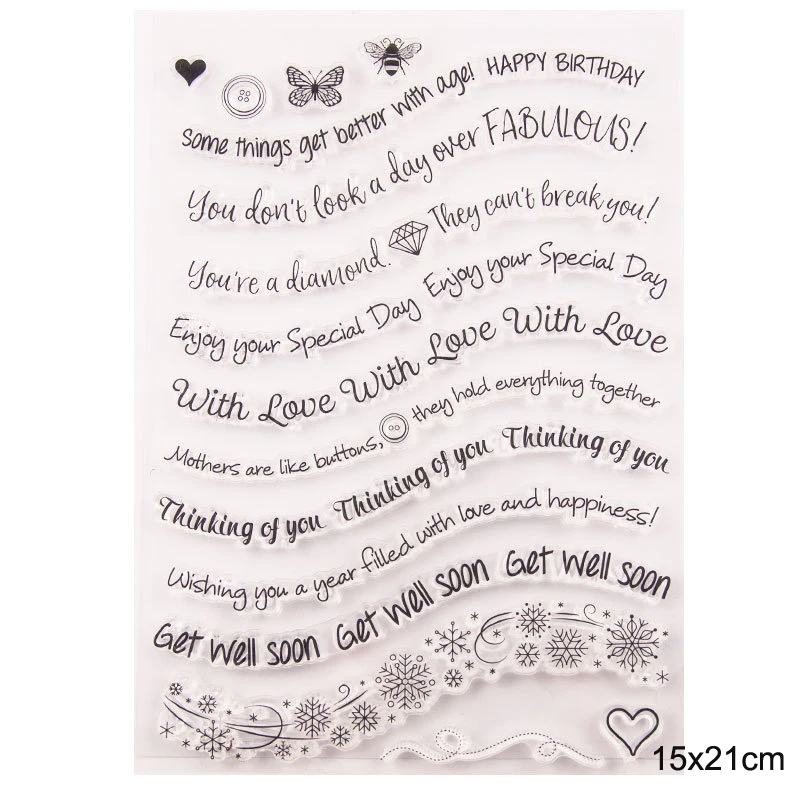 Some things get better with age! HAPPY BIRTHDAY
You don't look a day over FABULOUS!
You're a diamond. They can't break you!
Enjoy your Special Day Enjoy your Special Day
With Love With Love With Love
Mothers are like buttons, they hold everything together
Thinking of you Thinking of you Thinking of you
Wishing you a year filled with love and happiness!
Get well soon Get well soon Get well soon
15x21cm